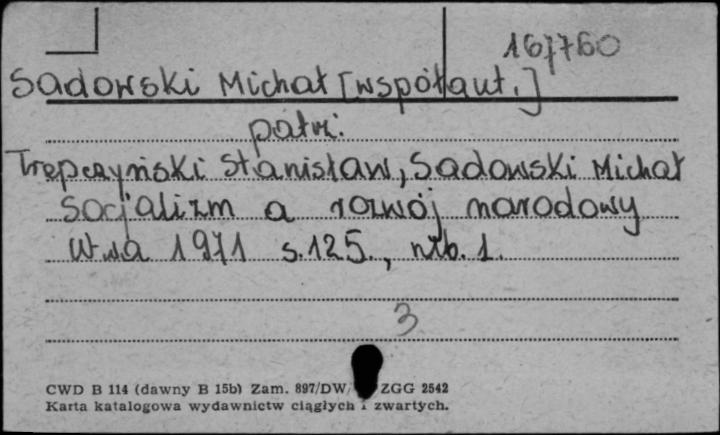 167760
Sadowski Michał [współaut.]
patrz:
Trepczyński Stanisław, Sadowski Michał
Socjalizm a rozwój narodowy
W-wa 1971 s.125., nlb. 1.
3
CWD B 114 (dawny B 15b) Zam. 897/DW/ ZGG 2542
Karta katalogowa wydawnictw ciągłych i zwartych.